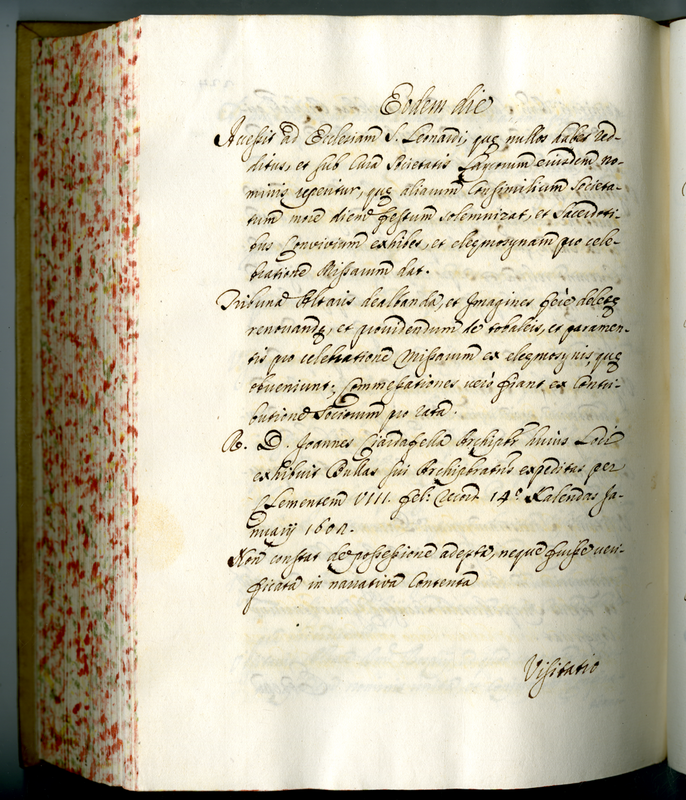 Eodem die
Accessit ad Ecclesiam S. Leonardi, quę nullos habet red-
ditus, et sub Cura Societatis Laycorum eiusdem no-
minis reperitur, quę aliarum Consimilium Societa-
tum more diem festum solemnizat, et Sacerdoti-
bus Convivium exhibet, et elegmosynam pro cele-
bratione Missarum dat.
Tribuna Altaris dealbanda, et Imagines ferè deletę
renouandę, et prouidendum de tobaleis, et paramen-
tis pro celebratione Missarum ex elegmosynis, quę
obveniunt; Commessationes verò fiant ex Contri-
butione Sociorum pro rata.
R. D. Joannes Archipbr huius Loci
exhibuit Bullas sui Archipbratus expeditas per
Clementem VIII. fel: record. 14.° Kalendas Ja-
nuarij 1602.
Non constat de possessione adepta, neque fuisse veri-
ficata in narrativa Contenta
Visitatio